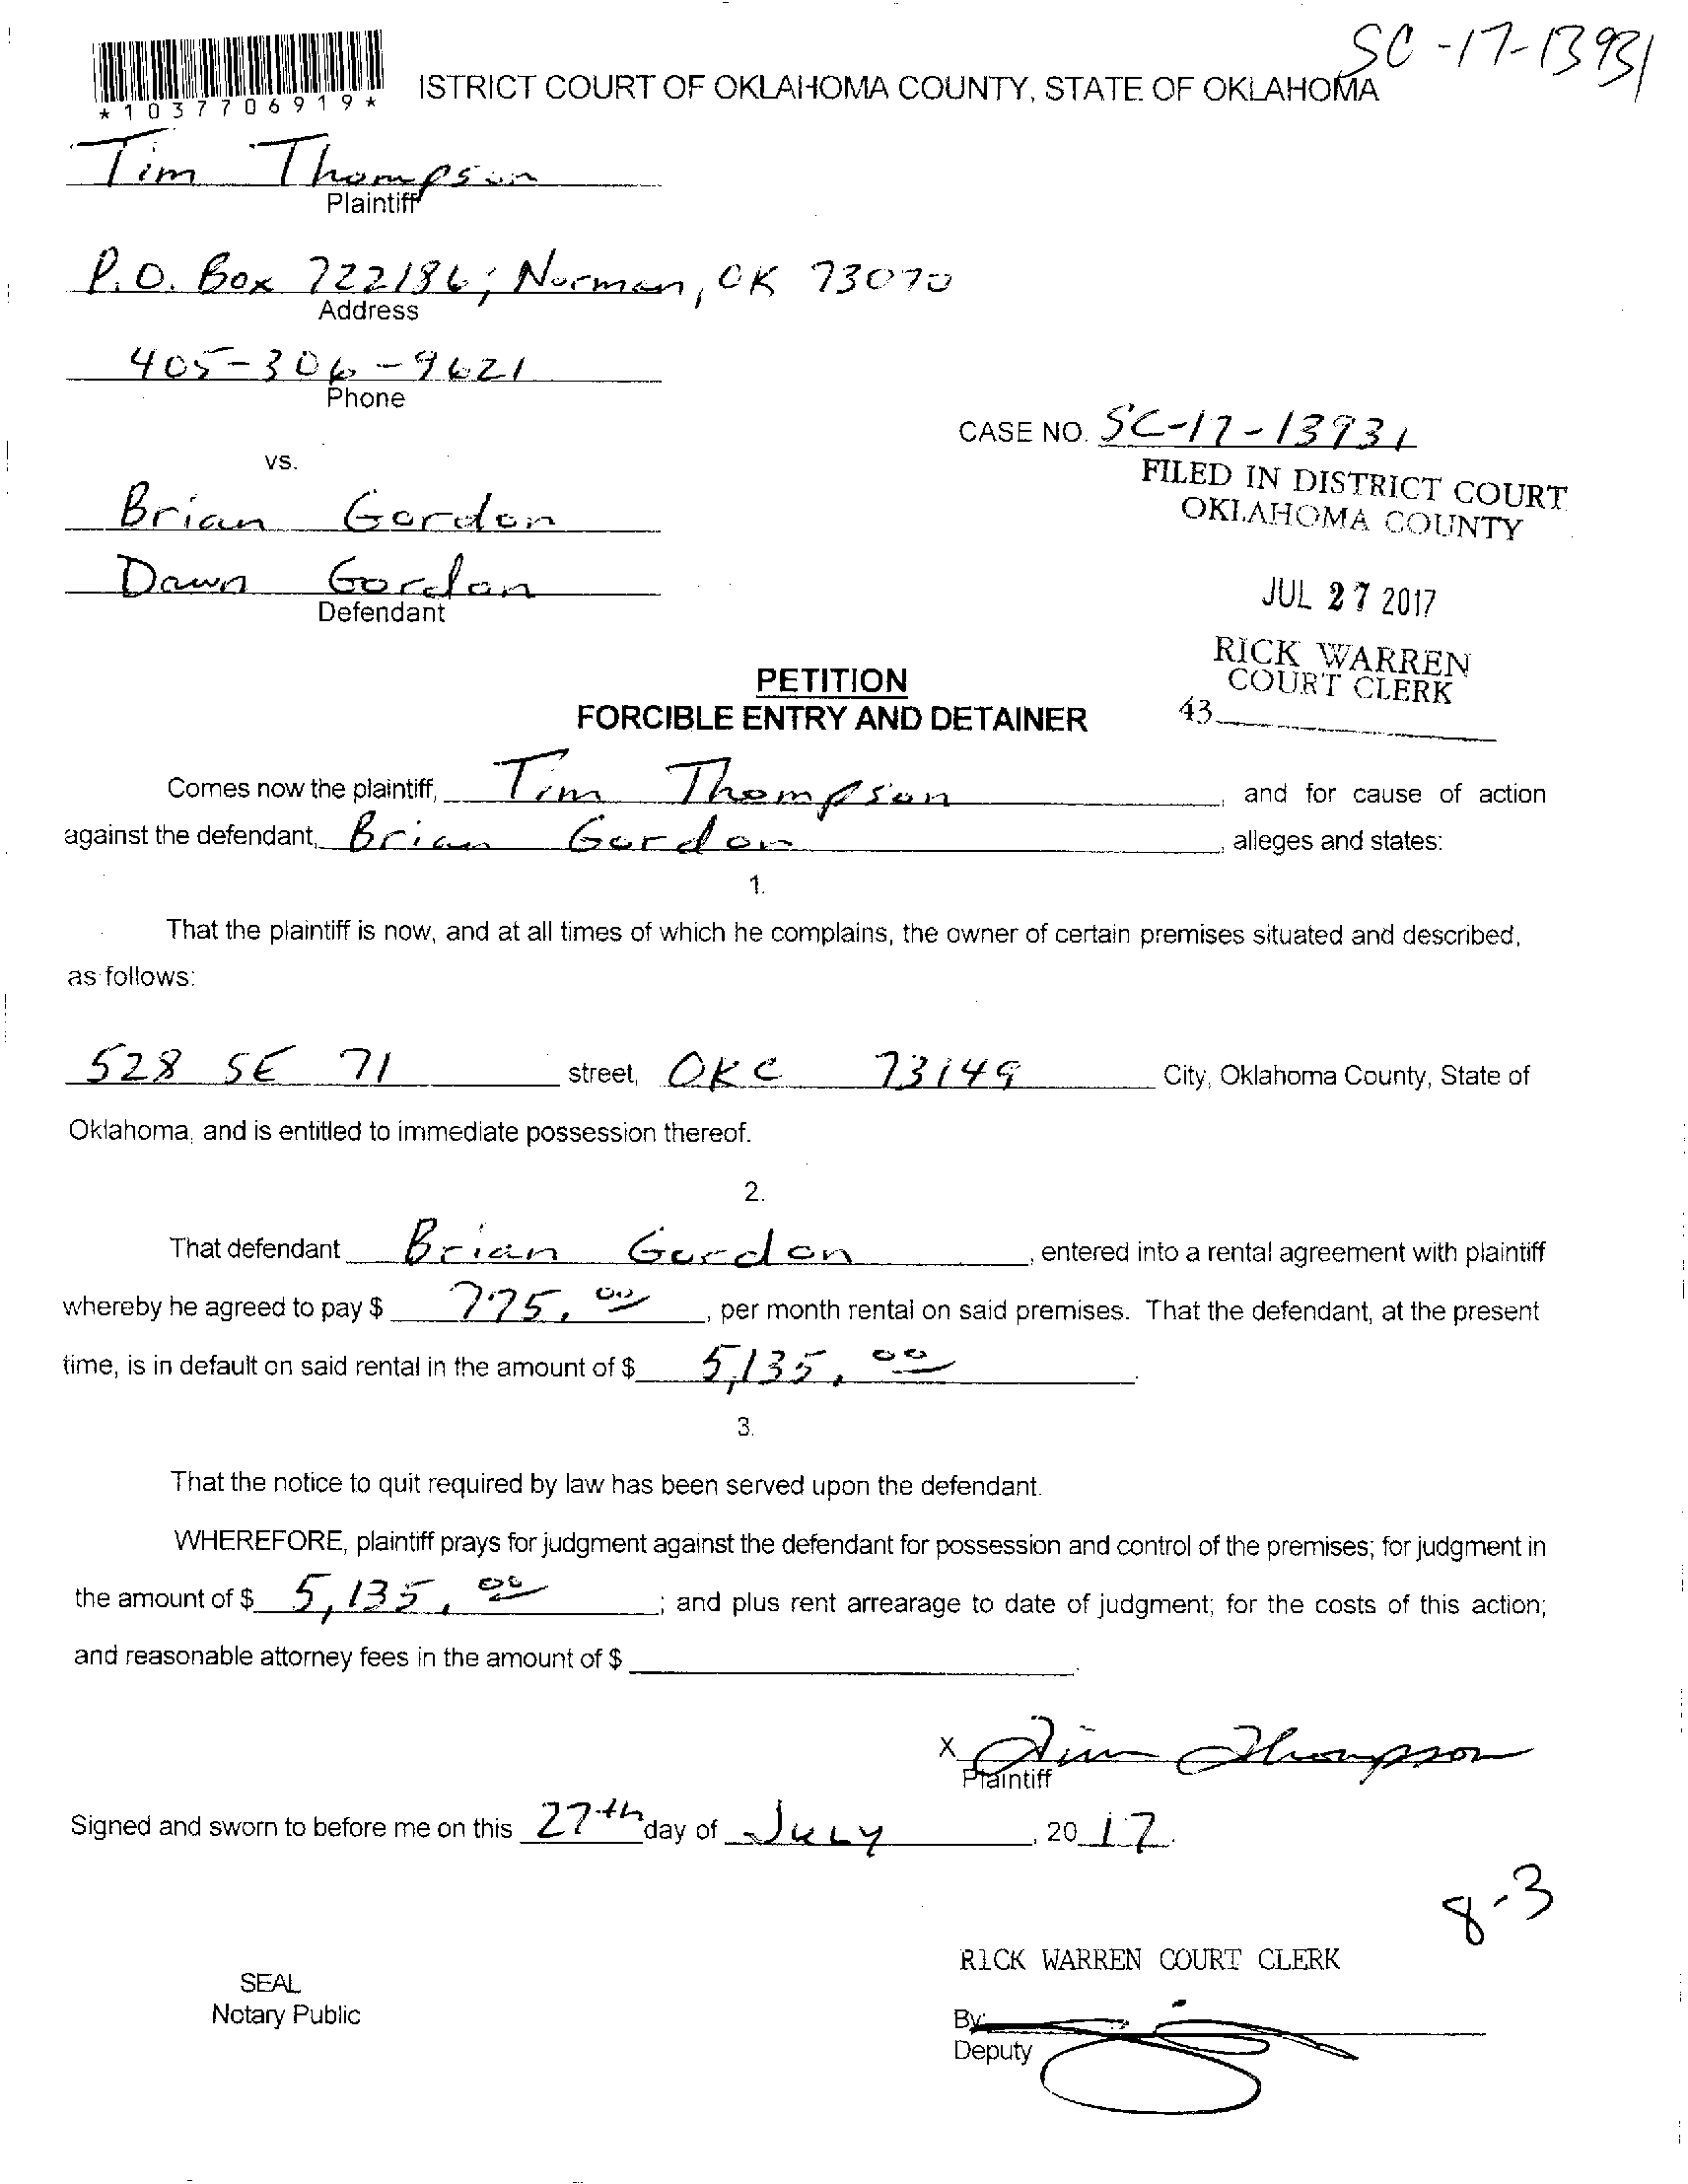 SC-17-13931
*1037706919*
ISTRICT COURT OF OKLAHOMA COUNTY, STATE OF OKLAHOMA
Tim Thompson
Plaintiff
P.O. Box 722186; Norman, OK 73070
Address
405-306-9621
Phone
CASE NO. SC-17-13931
vs.
FILED IN DISTRICT COURT
OKLAHOMA COUNTY
Brian Gordon
Dawn Gordon
Defendant
JUL 27 2017
RICK WARREN
COURT CLERK
43
PETITION
FORCIBLE ENTRY AND DETAINER
Comes now the plaintiff, Tim Thompson, and for cause of action
against the defendant, Brian Gordon, alleges and states:
1.
That the plaintiff is now, and at all times of which he complains, the owner of certain premises situated and described,
as follows:
528 SE 71 street, OKC 73149 City, Oklahoma County, State of
Oklahoma, and is entitled to immediate possession thereof.
2.
That defendant Brian Gordon, entered into a rental agreement with plaintiff
whereby he agreed to pay $ 775.00, per month rental on said premises. That the defendant, at the present
time, is in default on said rental in the amount of $ 5,135.00.
3.
That the notice to quit required by law has been served upon the defendant.
WHEREFORE, plaintiff prays for judgment against the defendant for possession and control of the premises; for judgment in
the amount of $ 5,135.00; and plus rent arrearage to date of judgment; for the costs of this action;
and reasonable attorney fees in the amount of $ .
X Tim Thompson
Plaintiff
Signed and sworn to before me on this 27th day of July, 20 17.
8-3
RICK WARREN COURT CLERK
SEAL
Notary Public
By:
Deputy